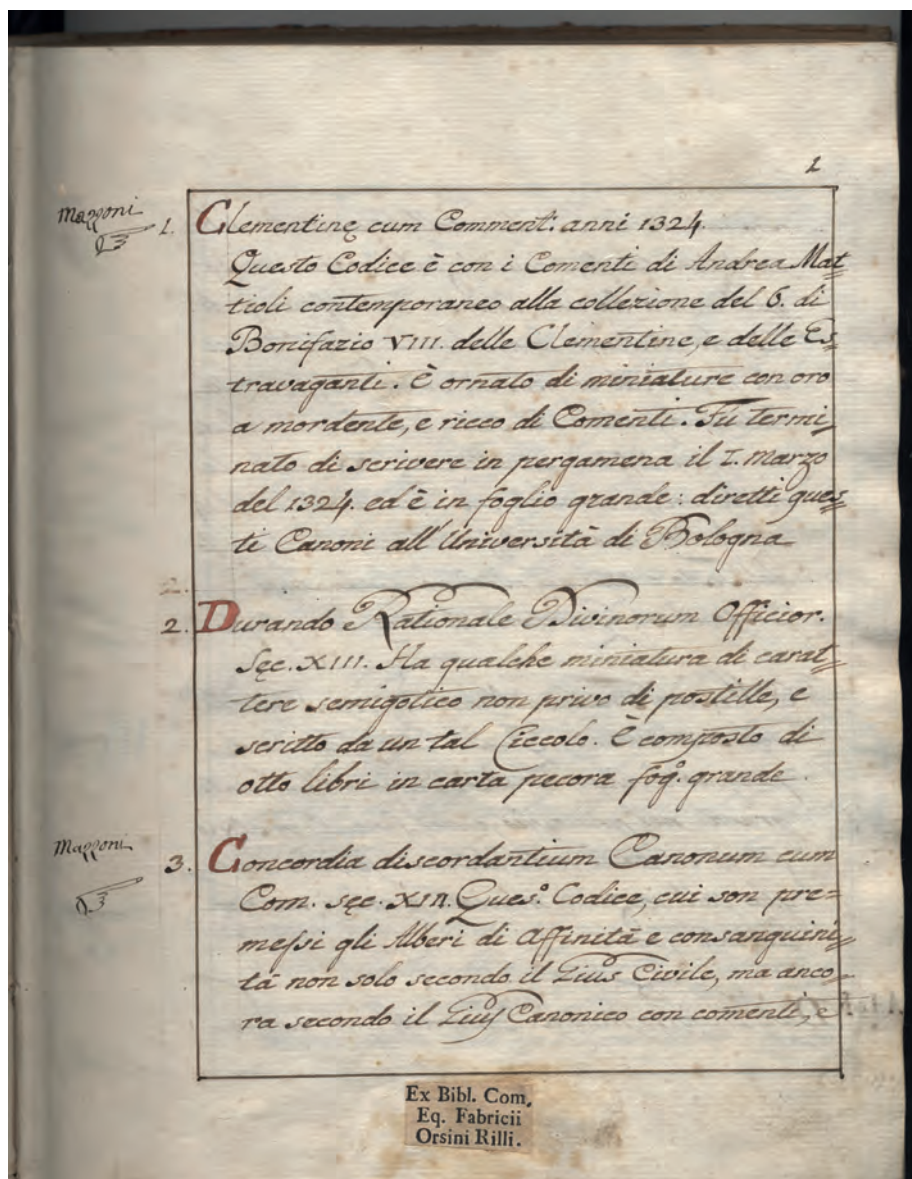 1
Mazzoni
1. Clementinę cum Comment. anni 1324.
Questo Codice è con i Comenti di Andrea Mat=
tioli contemporaneo alla collezione del 6. di
Bonifazio VIII. delle Clementine, e delle Es=
travaganti. È ornato di miniature con oro
a mordente, e ricco di Comenti. Fu termi=
nato di scrivere in pergamena il I. Marzo
del 1324. ed è in foglio grande: diretti ques=
ti Canoni all'Università di Bologna
2. Durando Rationale Divinorum Officior.
Sęc. XIII. Ha qualche miniatura di carat=
tere semigotico non privo di postille, e
scritto da un tal Ciccolo. È composto di
otto libri in carta pecora fog.º grande.
Mazzoni
3. Concordia discordantium Canonum cum
Com. sęc. XIII. Ques.º Codice, cui son pre=
messi gli Alberi di Affinità e consanguini=
tà non solo secondo il Lius Civile, ma anco=
ra secondo il Lius Canonico con comenti, e
Ex Bibl. Com.
Eq. Fabricii
Orsini Rilli.